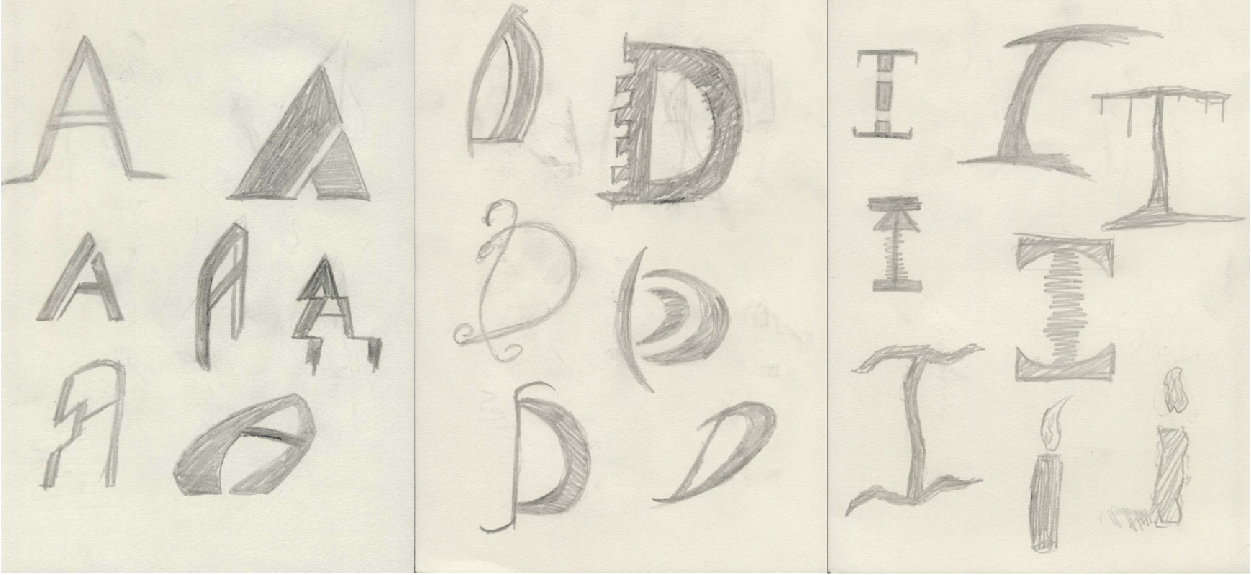 A A
A A A
A A
D D
D D
D D
I I I
I I
I i i